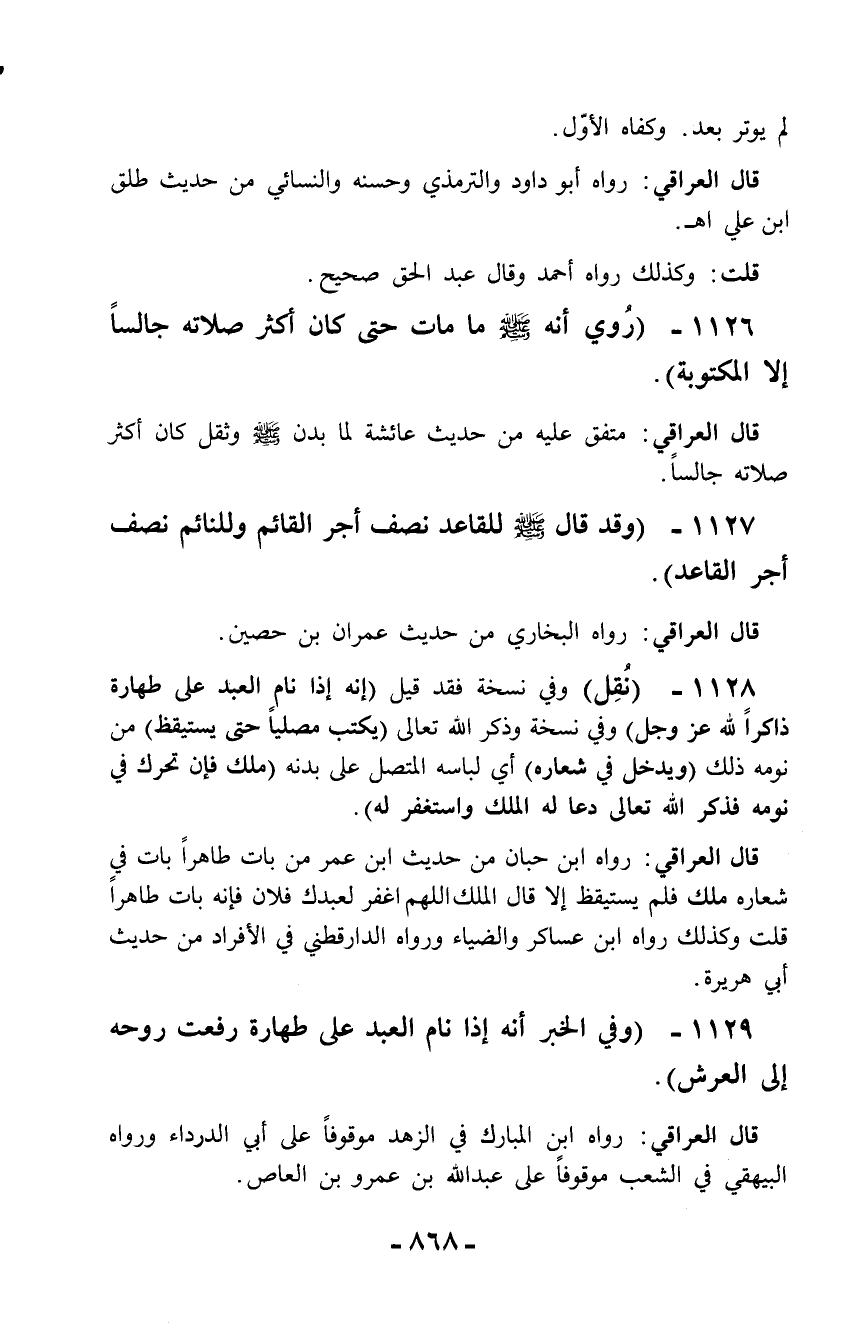 لم يوتر بعد. وكفاه الأوّل.
قال العراقي: رواه أبو داود والترمذي وحسنه والنسائي من حديث طلق
ابن علي اهـ.
قلت: وكذلك رواه أحمد وقال عبد الحق صحيح.
١١٢٦ ـ (رُوي أنه ﷺ ما مات حتى كان أكثر صلاته جالساً
إلا المكتوبة).
قال العراقي: متفق عليه من حديث عائشة لما بدن ﷺ وثقل كان أكثر
صلاته جالساً.
١١٢٧ ـ (وقد قال ﷺ للقاعد نصف أجر القائم وللنائم نصف
أجر القاعد).
قال العراقي: رواه البخاري من حديث عمران بن حصين.
١١٢٨ ـ (نُقِل) وفي نسخة فقد قيل (إنه إذا نام العبد على طهارة
ذاكراً لله عز وجل) وفي نسخة وذكر الله تعالى (يكتب مصلياً حتى يستيقظ) من
نومه ذلك (ويدخل في شعاره) أي لباسه المتصل على بدنه (ملك فإن تحرك في
نومه فذكر الله تعالى دعا له الملك واستغفر له).
قال العراقي: رواه ابن حبان من حديث ابن عمر من بات طاهراً بات في
شعاره ملك فلم يستيقظ إلا قال الملك اللهم اغفر لعبدك فلان فإنه بات طاهراً
قلت وكذلك رواه ابن عساكر والضياء ورواه الدارقطني في الأفراد من حديث
أبي هريرة.
١١٢٩ ـ (وفي الخبر أنه إذا نام العبد على طهارة رفعت روحه
إلى العرش).
قال العراقي: رواه ابن المبارك في الزهد موقوفاً على أبي الدرداء ورواه
البيهقي في الشعب موقوفاً على عبدالله بن عمرو بن العاص.
ـ ٨٦٨ ـ